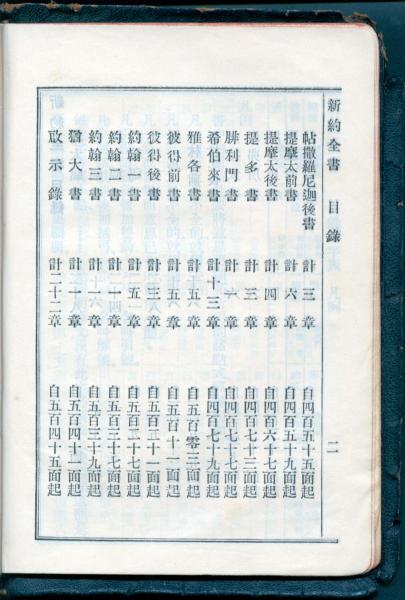 新約全書 目錄 二
帖撒羅尼迦後書 計三章 自四百五十五面起
提摩太前書 計六章 自四百五十九面起
提摩太後書 計四章 自四百六十七面起
提多書 計三章 自四百七十三面起
腓利門書 計一章 自四百七十七面起
希伯來書 計十三章 自四百七十九面起
雅各書 計五章 自五百零三面起
彼得前書 計五章 自五百十一面起
彼得後書 計三章 自五百二十一面起
約翰一書 計五章 自五百二十七面起
約翰二書 計一章 自五百三十七面起
約翰三書 計一章 自五百三十九面起
猶大書 計一章 自五百四十一面起
啟示錄 計二十二章 自五百四十五面起